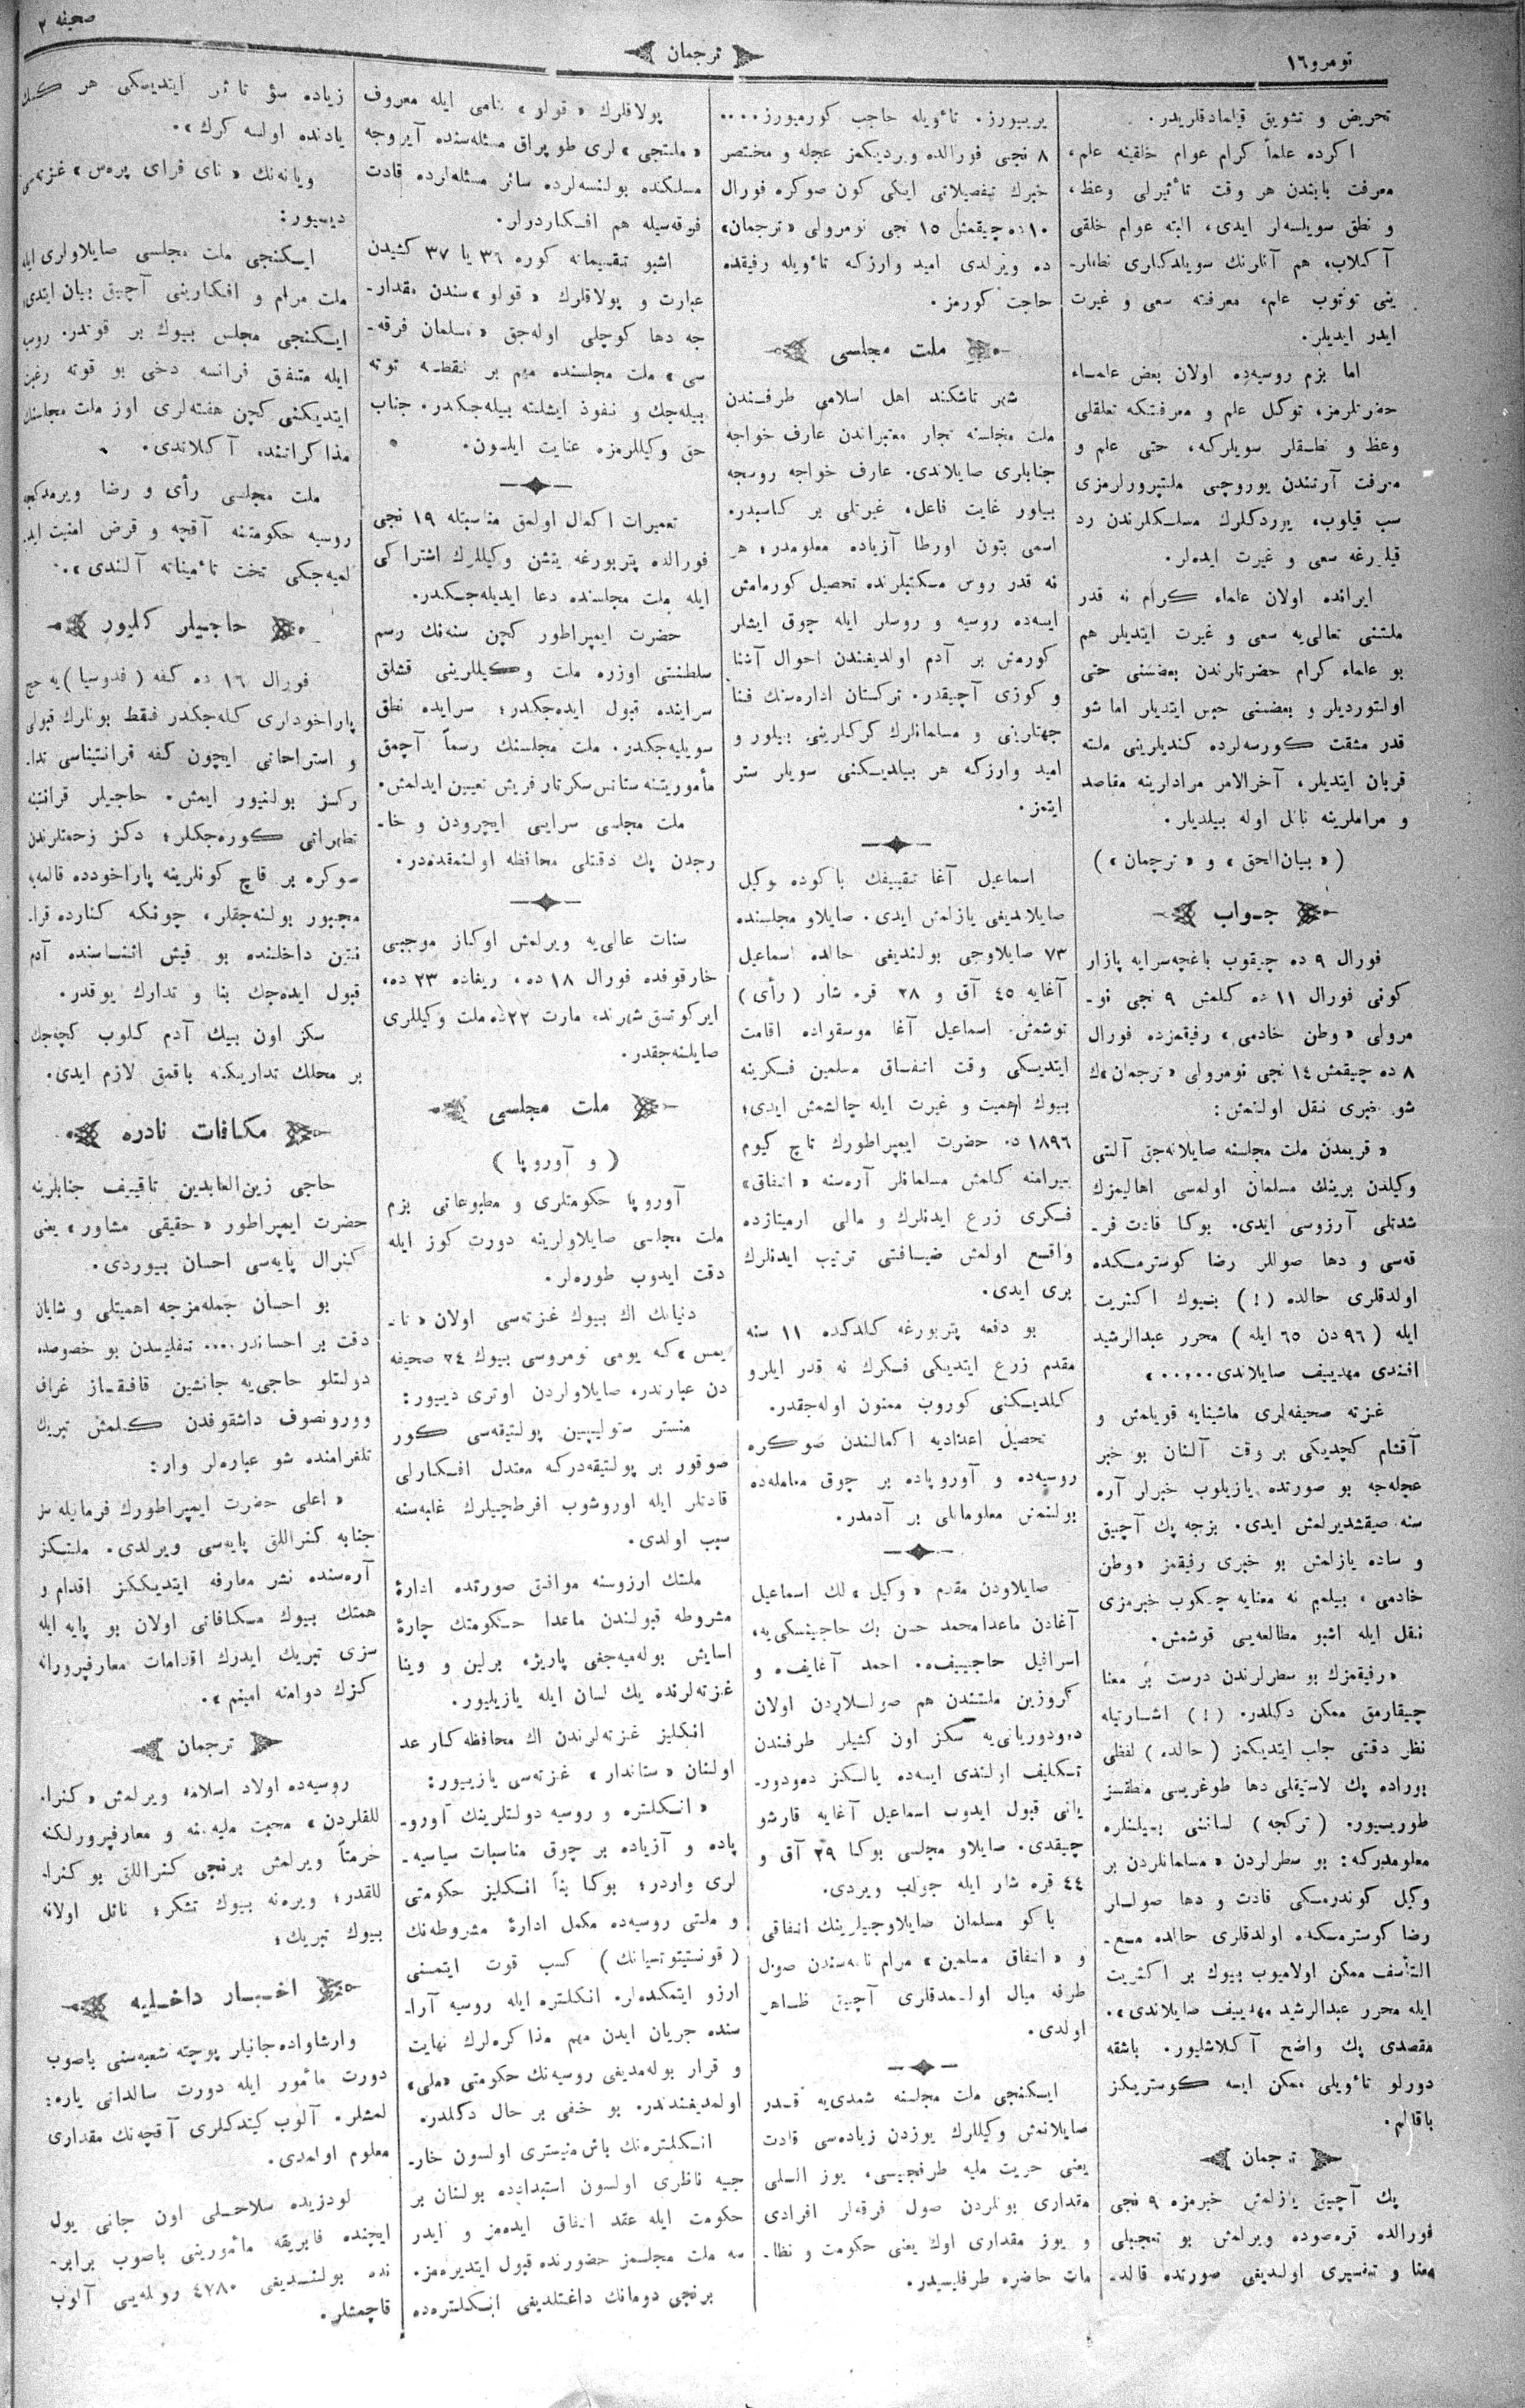 نومرو ١٦
ترجمان
صحیفه ٢
تحریض و تشویق قیلمادقلریدر.
اكرده علمأ كرام عوام خلقینه علم،
معرفت بابندن هر وقت تأثیرلی وعظ،
و نطق سویلسه‌لر ایدی، البته عوام خلقی
آكلاب، هم آنلرنك سویلدكلری نطقلر-
ینی توتوب علم، معرفته سعی و غیرت
ایدر ایدیلر.
اما بزم روسیه‌ده اولان بعض علمـاء
حضرتلرمز، توكل علم و معرفتكه تعلقلی
وعظ و نطـقلر سویلركه، حتی علم و
معرفت آرتندن یوروچی ملتپرورلرمزی
سب قیلوب، یررد كلرك مسلـكلرندن رد
قیلورغه سعی و غیرت ایده‌لر.
ایرانده اولان علماء كرام نه قدر
ملتنی تعالی‌یه سعی و غیرت ایتدیلر هم
بو علماء كرام حضرتلرندن بعضسنی حتی
اولتوردیلر و بعضسنی حبس ایتدیلر اما شو
قدر مشقت كورسه‌لرده كندیلرینی ملته
قربان ایتدیلر، آخرالامر مرادلرینه مقاصد
و مراملرینه نائل اوله بیلدیلر.
(« بیان‌الحق » و « ترجمان »)
جـواب
فورال ٩ ده چیقوب باغچه‌سرایه پازار
كونی فورال ١١ ده كلمش ٩ نجی نو-
مرولی « وطن خادمی » رفیقمزده فورال
٨ ده چیقمش ١٤ نجی نومرولی « ترجمان »ك
شو خبری نقل اولنمش:
« قریمدن ملت مجلسنه صایلانه‌جق آلتی
وكیلدن برینك مسلمان اولمسی اهالیمزك
شدتلی آرزوسی ایدی. بوكا قادت فر-
قه‌سی و دها صوللر رضا كوسترمـكده
اولدقلری حالده (!) بـیوك اكثریت
ایله (٩٦ دن ٦٥ ایله) محرر عبدالرشید
افندی مهدییف صایلاندی.....»
غزته صحیفه‌لری ماشینایه قویلمش و
آقشام كچدیكی بر وقت آلنان بو خبر
عجله‌جه بو صورتده یازیلوب خبرلر آره
سنه صیقشدیرلمش ایدی. بزجه پك آچیق
و ساده یازلمش بو خبری رفیقمز « وطن
خادمی » بیلمم نه معنایه چـكوب خبرمزی
نقل ایله اشبو مطالعه‌یی قوشمش.
« رفیقمزك بو سطرلرندن درست بر معنا
چیقارمق ممكن دكلدر. (!) اشـارتیله
نظر دقتی جلب ایتدیكمز (حالده) لفظی
بوراده پك لاستیقلی دها طوغریسی منطقسز
طوریـیور. (تركجه) لساننی بـیلنلره
معلومدركه: بو سطرلردن « مسلمانلردن بر
وكیل كوندرمـكی قادت و دها صولـلر
رضا كوسترمـكده اولدقلری حالده مـع-
التأسف ممكن اولامیوب بیوك بر اكثریت
ایله محرر عبدالرشید مهدییف صایلاندی ».
مقصدی پك واضح آكلاشلیور. باشقه
دورلو تأویلی ممكن ایسه كوستریكز
باقالم.
ترجمان
پك آچیق یازلمش خبرمزه ٩ نجی
فورالده قره‌صوده ویرلمش بو تعجیلی
معنا و تفسیری اولدیغی صورتده قالد-
یریـیورز. تأویله حاجب كورمیورز....
٨ نجی فورالده ویردیكمز عجله و مختصر
خبرك تفصیلاتی ایكی كون صوكره فورال
١٠ ده چیقمش ١٥ نجی نومرولی « ترجمان »
ده ویرلدی امید وارزكه تأویله رفیقمده
حاجت كورمز.
ملت مجلسی
شهر تاشكند اهل اسلامی طرفـندن
ملت مجلسنه تجار معتبراندن عارف خواجه
جنابلری صایلاندی. عارف خواجه روسجه
بیلور غایت فاعل، غیرتلی بر كاسبدر.
اسمی بتون اورطا آزیاده معلومدر؛ هر
نه قدر روس مـكتبلرنده تحصیل كورمامش
ایسه‌ده روسیه و روسلر ایله چوق ایشلر
كورمش بر آدم اولدیغندن احوال آشنا
و كوزی آچیقدر. تركستان اداره‌سنك فنا
جهتلرینی و مسلمانلرك كركلرینی بیلور و
امید وارزكه هر بیلدیـكنی سویلر ستر
ایتمز.
اسماعیل آغا تقییفك باكوده وكیل
صایلاندیغی یازلمش ایدی. صایلاو مجلسنده
٧٣ صایلاوجی بولندیغی حالده اسماعیل
آغایه ٤٥ آق و ٢٨ قره شار (رأی)
توشمش. اسماعیل آغا موسقواده اقامت
ایتدیـكی وقت اتفـاق مسلمین فـكرینه
بیوك اهمیت و غیرت ایله چالشمش ایدی؛
١٨٩٦ ده حضرت ایمپراطورك تاج كیوم
بیرامنه كلمش مسلمانلر آره‌سنه « اتفاق »
فـكری زرع ایدنلرك و مالی ارمیتازده
واقـع اولمش ضیـافتی ترتیب ایدنلرك
بری ایدی.
بو دفعه پتربورغه كلدكده ١١ سنه
مقدم زرع ایتدیكی فـكرك نه قدر ایلرو
كلدیـكنی كوروب ممنون اوله‌جقدر.
تحصیل اعدادیه اكمالندن صوكره
روسیه‌ده و آوروپاده بر چوق معامله‌ده
بولنمش معلوماتلی بر آدمدر.
صایلاودن مقدم « وكیل » لك اسماعیل
آغادن ماعدا محمد حسن بك حاجینسكی‌یه،
اسرافیل حاجییفه. احمد آغایفه و
كروزین ملتندن هم صولـلاردن اولان
ده‌ودوریانی‌یه سكز اون كشیلر طرفـندن
تـكلیف اولندی ایسه‌ده یالـكز ده‌ودور-
یانی قبول ایدوب اسماعیل آغایه قارشو
چیقدی. صایلاو مجلسی بوكا ٢٩ آق و
٤٤ قره شار ایله جواب ویردی.
باكو مسلمان صایلاوجیلرینك اتفاقی
و « اتفاق مسلمین » مرام نامه‌سندن صول
طرفه میال اولـمدقلری آچیق ظـاهر
اولدی.
ایـكنجی ملت مجلسنه شمدی‌یه قـدر
صایلانمش وكیللرك یوزدن زیاده‌سی قادت
یعنی حریت ملیه طرفجیسی، یوز اللـی
مقداری بونلردن صول فرقه‌لر افرادی
و یوز مقداری اوك یعنی حكومت و نظا-
مات حاضره طرفلیسیدر.
پولاقلرك « قولو » نامی ایله معروف
« ملتجی » لری طوپراق مسئله‌سنده آیروجه
مسلكنده بولنسه‌لرده سائر مسئله‌لرده قادت
فرقه‌سیله هم افـكاردرلر.
اشبو تقسیماته كوره ٣٦ یا ٣٧ كشیدن
عبارت و پولاقلرك « قولو » سندن مقدار-
جه دها كوچلی اوله‌جق « مسلمان فرقه-
سی » ملت مجلسنده مهم بر نقطـه توته
بیله‌جك و نفوذ ایشلته بیله‌جـكدر. جناب
حق وكیللرمزه عنایت ایلسون.
تعمیرات اكمال اولمق مناسبتله ١٩ نجی
فورالده پتربورغه یتشن وكیللرك اشتراكی
ایله ملت مجلسنده دعا ایدیله‌جـكدر.
حضرت ایمپراطور كچن سنه‌نك رسم
سلطنتی اوزره ملت وكیللرینی قشلق
سراینده قبول ایده‌جكدر؛ سرایده نطق
سویلیه‌جكدر. ملت مجلسنك رسماً آچمق
مأموریتنه ستاتس سكرتار فریش تعیین ایدلمش.
ملت مجلسی سرایـی ایچرودن و خا-
رجدن پك دقتلی محافظه اولنمقده‌در.
سنات عالی‌یه ویرلمش اوكاز موجبـی
خارقوفده فورال ١٨ ده، ریغاده ٢٣ ده،
ایركوتسق شهرنده مارت ٢٢ ده ملت وكیللری
صایلنه‌جقدر.
ملت مجلسی
(و آوروپا)
آوروپا حكومتلری و مطبوعاتی بزم
ملت مجلسی صایلاولرینه دورت كوز ایله
دقت ایدوب طوره‌لر.
دنیانك اك بیوك غزته‌سی اولان « تا-
یمس » كه یومی نومروسی بیوك ٢٤ صحیفه
دن عبارتدر، صایلاولردن اوتری دیـیور:
منستر ستولیپین پولتیقه‌سی كور
صوقور بر پولتیقه‌دركه معتدل افـكارلی
قادتلر ایله اوروشوب افراطجیلرك غلبه‌سنه
سبب اولدی.
ملتك ارزوسنه موافق صورتده ادارهٔ
مشروطه قبولندن ماعدا حـكومتك چارهٔ
اسایش بوله‌میه‌جغی پاریژ، برلین و وینا
غزته‌لرنده یك لسان ایله یازیلیور.
انكلیز غزته‌لرندن اك محافظه‌كار عد
اولنان « ستاندار » غزته‌سی یازیـیور:
« انـكلتره و روسیه دولتلرینك آورو-
پاده و آزیاده بر چوق مناسبات سیاسیه-
لری واردر؛ بوكا بنأ انـكلیز حكومتی
و ملتی روسیه‌ده مكمل ادارهٔ مشروطه‌نك
(قونستیتوتسیانك) كسب قوت ایتمسنی
ارزو ایتمكده‌لر. انكلتره ایله روسیه آرا-
سنده جریان ایدن مهم مذاكره‌لرك نهایت
و قرار بوله‌مدیغی روسیه‌نك حكومتی « ملی »
اولمدیغندندر. بو خفی بر حال دكلدر.
انـكلتره‌نك باش منیستری اولسون خار-
جیه ناظری اولسون استبدادده بولنان بر
حكومت ایله عقد اتفاق ایده‌مز و ایدر
سه ملت مجلسمز حضورنده قبول ایتدیره‌مز.
برنجی دومانك داغتلدیغی انـكلتره‌ده
زیاده سؤ تأثر ایتدیـكی هر كسك
یادنده اولسه كرك ».
ویانه‌نك « نای فرای پره‌س » غزته‌سی
دیـیور:
ایـكنجی ملت مجلسی صایلاولری ایله
ملت مرام و افـكارینی آچیق بیان ایتدی،
ایـكنجی مجلس بیوك بر قوتدر. روس
ایله متفق فرانسه دخی بو قوته رغبت
ایتدیـكنی كچن هفته‌لری اوز ملت مجلسنك
مذاكراتنده آكلاندی.
ملت مجلسی رأی و رضا ویرمدكجه
روسیه حكومتنه آقچه و قرض امنیت ایدـ
لمیه‌جكی تخت تأمیناته آلندی ».
حاجـیلر كلیور
فورال ١٦ ده كفه (فدوسیا) یه حج
پاراخوداری كله‌جكدر فقط بونلرك قبولی
و استراحاتی ایچون كفه قرانتیناسی تدا-
ركسز بولنیور ایمش. حاجیلر قرانتینه
تطهیراتی كوره‌جكلر؛ دكز زحمتلرندن
صوكره بر قاچ كونلرینه پاراخودده قالمه‌یه
مجبور بولنه‌جقلر، چونكه كنارده قرا-
نتین داخلنده بو قیش اثنـاسنده آدم
قبول ایده‌جك بنا و تدارك یوقدر.
سكز اون بیك آدم كلوب كچه‌جك
بر محلك تداریكنه باقمق لازم ایدی.
مكافات نادره
حاجی زین‌العابدین تاقییف جنابلرینه
حضرت ایمپراطور « حقیقی مشاور » یعنی
كنرال پایه‌سی احسان بیوردی.
بو احسان جمله‌مزجه اهمیتلی و شایان
دقت بر احساندر.... تفلیسدن بو خصوصده
دولتلو حاجی‌یه جانشین قافقـاز غراف
وورونصوف داشقوفدن كـلمش تبریك
تلغرامنده شو عباره‌لر وار:
« اعلی حضرت ایمپراطورك فرمانیله سز
جنابه كنراللق پایه‌سی ویرلدی. ملتـكز
آره‌سنده نشر معارفه ایتدیـككز اقدام و
همتك بیوك مـكافاتی اولان بو پایه ایله
سزی تبریك ایدرك اقدامات معارفپرورانه
كزك دوامنه امینم ».
ترجمان
روسیه‌ده اولاد اسلامه ویرلمش « كنرا-
للقلردن » محبت ملیه‌سنه و معارفپرورلكنه
خرمتاً ویرلمش برنجی كنراللق بو كنرا-
للقدر؛ ویره‌نه بیوك تشكر؛ نائل اولانه
بیوك تبریك؛
اخـبـار داخـلیه
وارشاواده جانیلر پوچته شعبه‌سنی باصوب
دورت مأمور ایله دورت سالداتی یاره-
لمشلر. آلوب كیتدكلری آقچه‌نك مقداری
معلوم اولمدی.
لودزیده سلاحـلی اون جانی یول
ایچنده فابریقه مأمورینی باصوب برابر-
نده بولنـدیغی ٤٢٨٠ روبله‌یی آلوب
قاچمشلر.